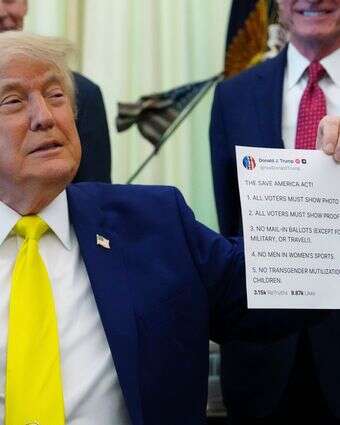 Donald J. Trump
@realDonaldTrump
THE SAVE AMERICA ACT!
1. ALL VOTERS MUST SHOW PHOTO
2. ALL VOTERS MUST SHOW PROOF
3. NO MAIL-IN BALLOTS (EXCEPT FO
MILITARY, OR TRAVEL!).
4. NO MEN IN WOMEN'S SPORTS
5. NO TRANSGENDER MUTILIZATION
CHILDREN.
3.15k ReTruths 9.87k Likes